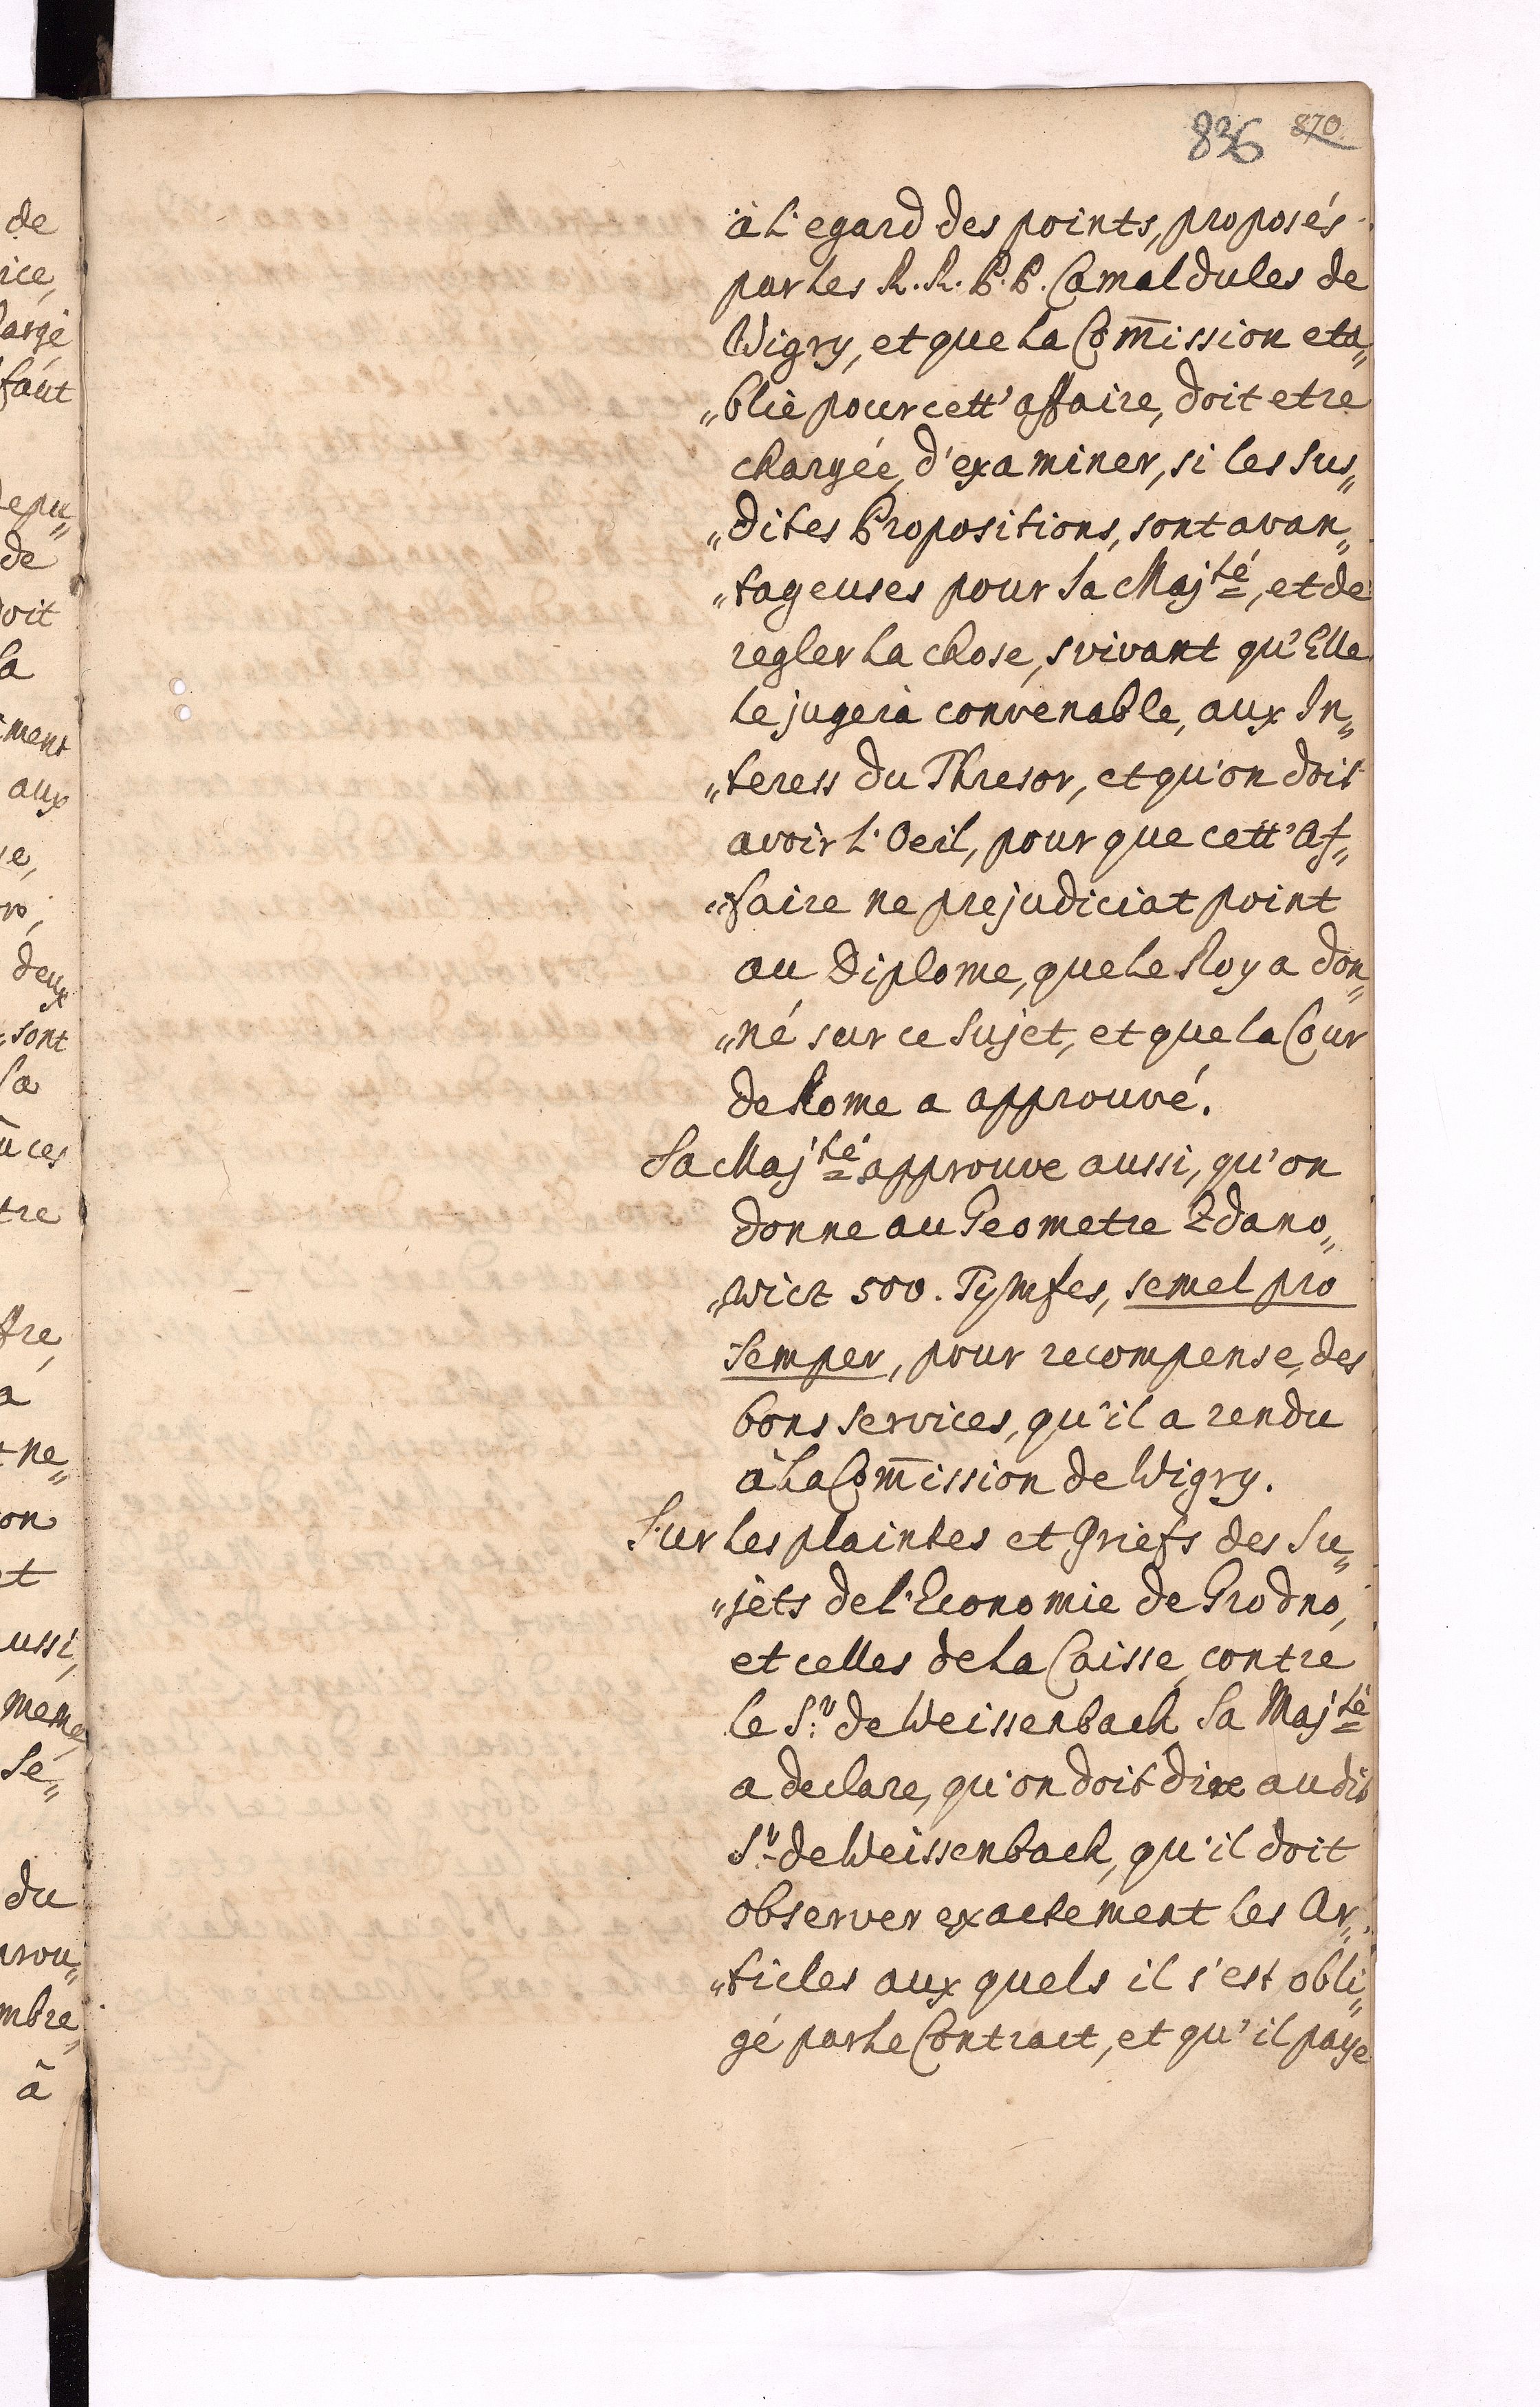 836 870.
à L'egard des points, proposés
par Les R. R. P. P. Camaldules de
Wigry, et que La Com̅ission eta„
„bliè pour cett' affaire, doit etre
chargée, d'examiner, si les sus„
„dites Propositions, sont avan„
„tageuses pour Sa Maj.té, et de
regler La chose, suivant qu'Elle
Le jugerà convenable, aux In„
„teress du Thresor, et qu'on doit
avoir L'Oeil, pour que cett' Af„
„faire ne prejudiciat point
au Diplome, que Le Roy a don„
„né sur ce Sujet, et que la Cour
de Rome a approuvé.
Sa Maj.té approuve aussi, qu'on
donne au Geometre Zdano„
„wicz 500. Tymfes, semel pro
semper, pour recompense, des
bons services, qu'il a rendu
à La Com̅ission de Wigry.
Sur Les plaintes et Griefs des Su„
„jets de l'Economie de Grodno,
et celles de La Caisse, contre
le S.r de Weissenbach, Sa Maj.té
a declare, qu'on doit dire audit
S.r de Weissenbach, qu'il doit
observer exactement Les Ar„
„ticles aux quels il s'est obli„
gé par Le Contract, et qu'il paye
de
faut
de
a
aux
deux
sont
Sa
tre
à
ne„
on
meme
Sé„
du
mbre„
â